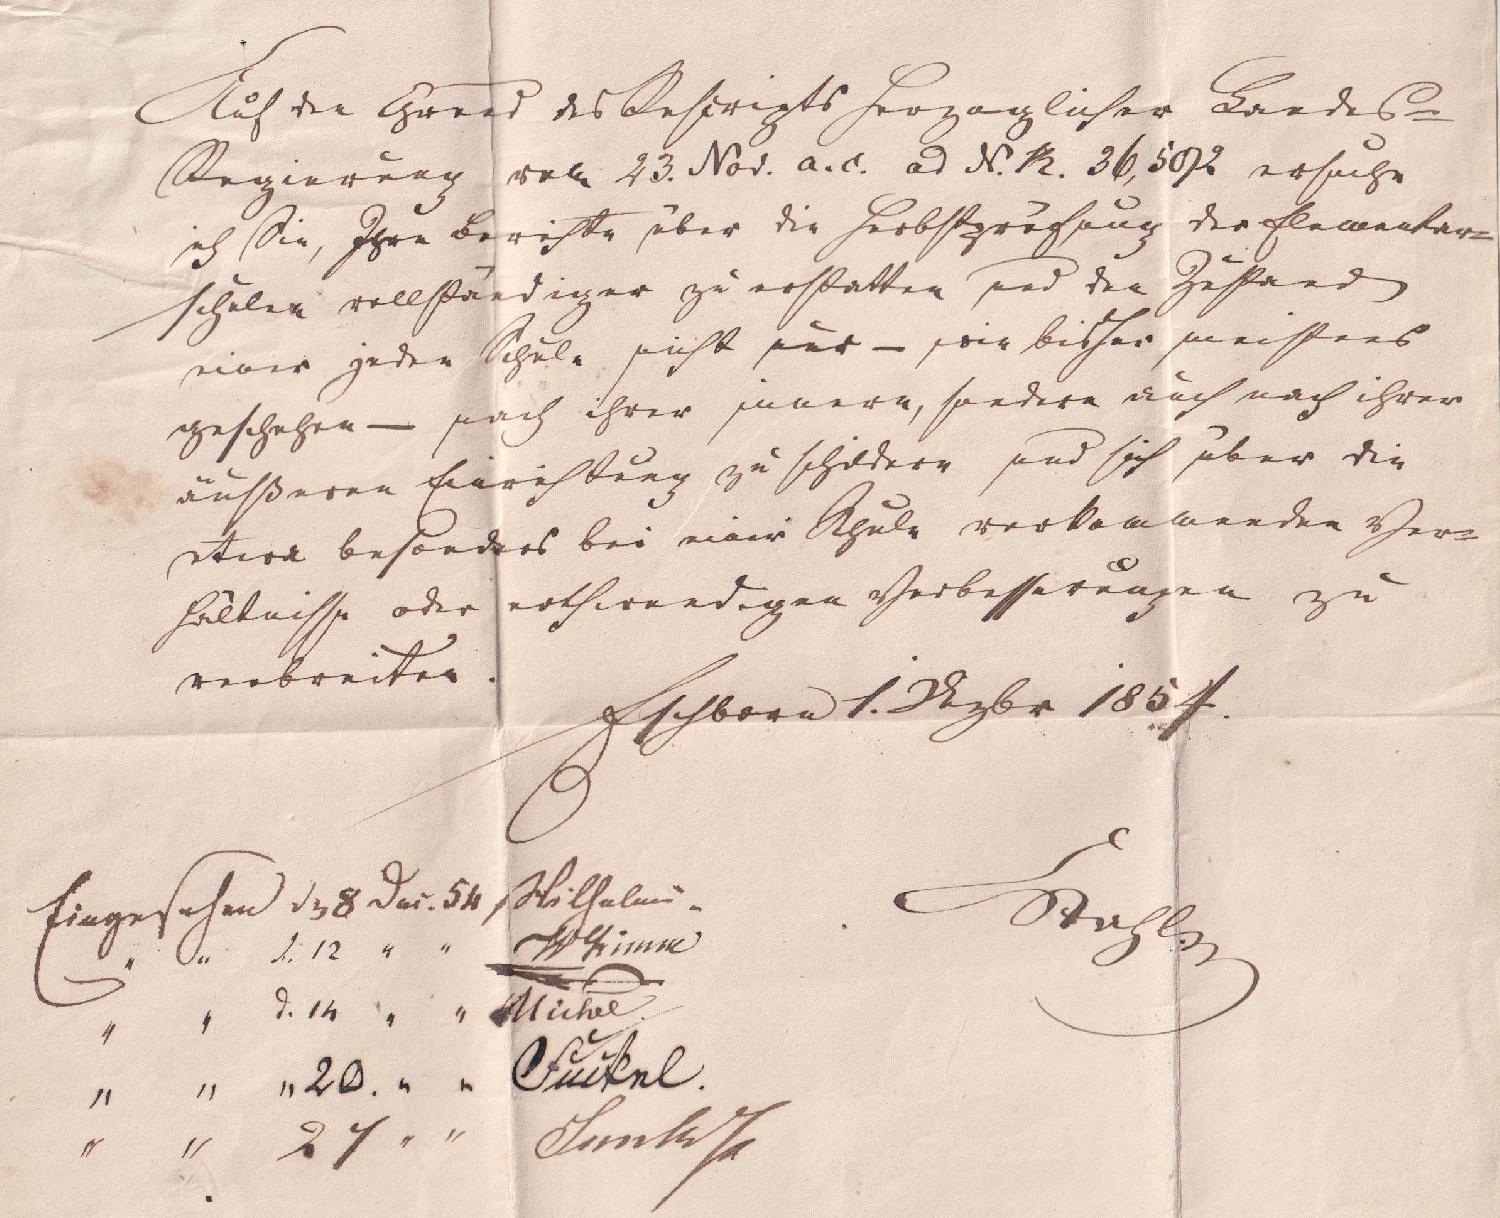 Auf den Grund des Rescripts Herzoglicher Landes-
Regierung vom 23. Nov. a. c. ad N. R. 36,592 ersuche
ich Sie, Ihre Berichte über die Herbstprüfung der Elementar-
schulen vollständiger zu erstatten und den Zustand
einer jeden Schule nicht nur — wie bisher meistens
geschehen — nach ihrer innern, sondern auch nach ihrer
äußeren Einrichtung zu schildern und sich über die
etwa besonders bei einer Schule vorkommenden Ver-
hältnisse oder nothwendigen Verbesserungen zu
verbreiten.
Eschborn 1. Dezbr 1854.
Stahl
Eingesehen d 8 Dec. 54 Wilhelmi.
" " d. 12 " " Grimm
" " d. 14 " " Michel
" " " 20. " " Fuckel.
" " 27 " "